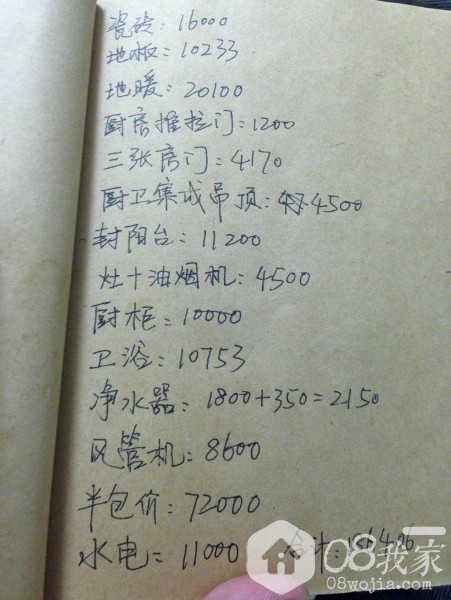 瓷砖：16000
地板：10233
地暖：20100
厨房推拉门：1200
三张房门：4170
厨卫集成吊顶：4500
封阳台：11200
灶+油烟机：4500
厨柜：10000
卫浴：10753
净水器：1800+350=2150
风管机：8600
半包价：72000
水电：11000 合计：186406
08我家
08wojia.com